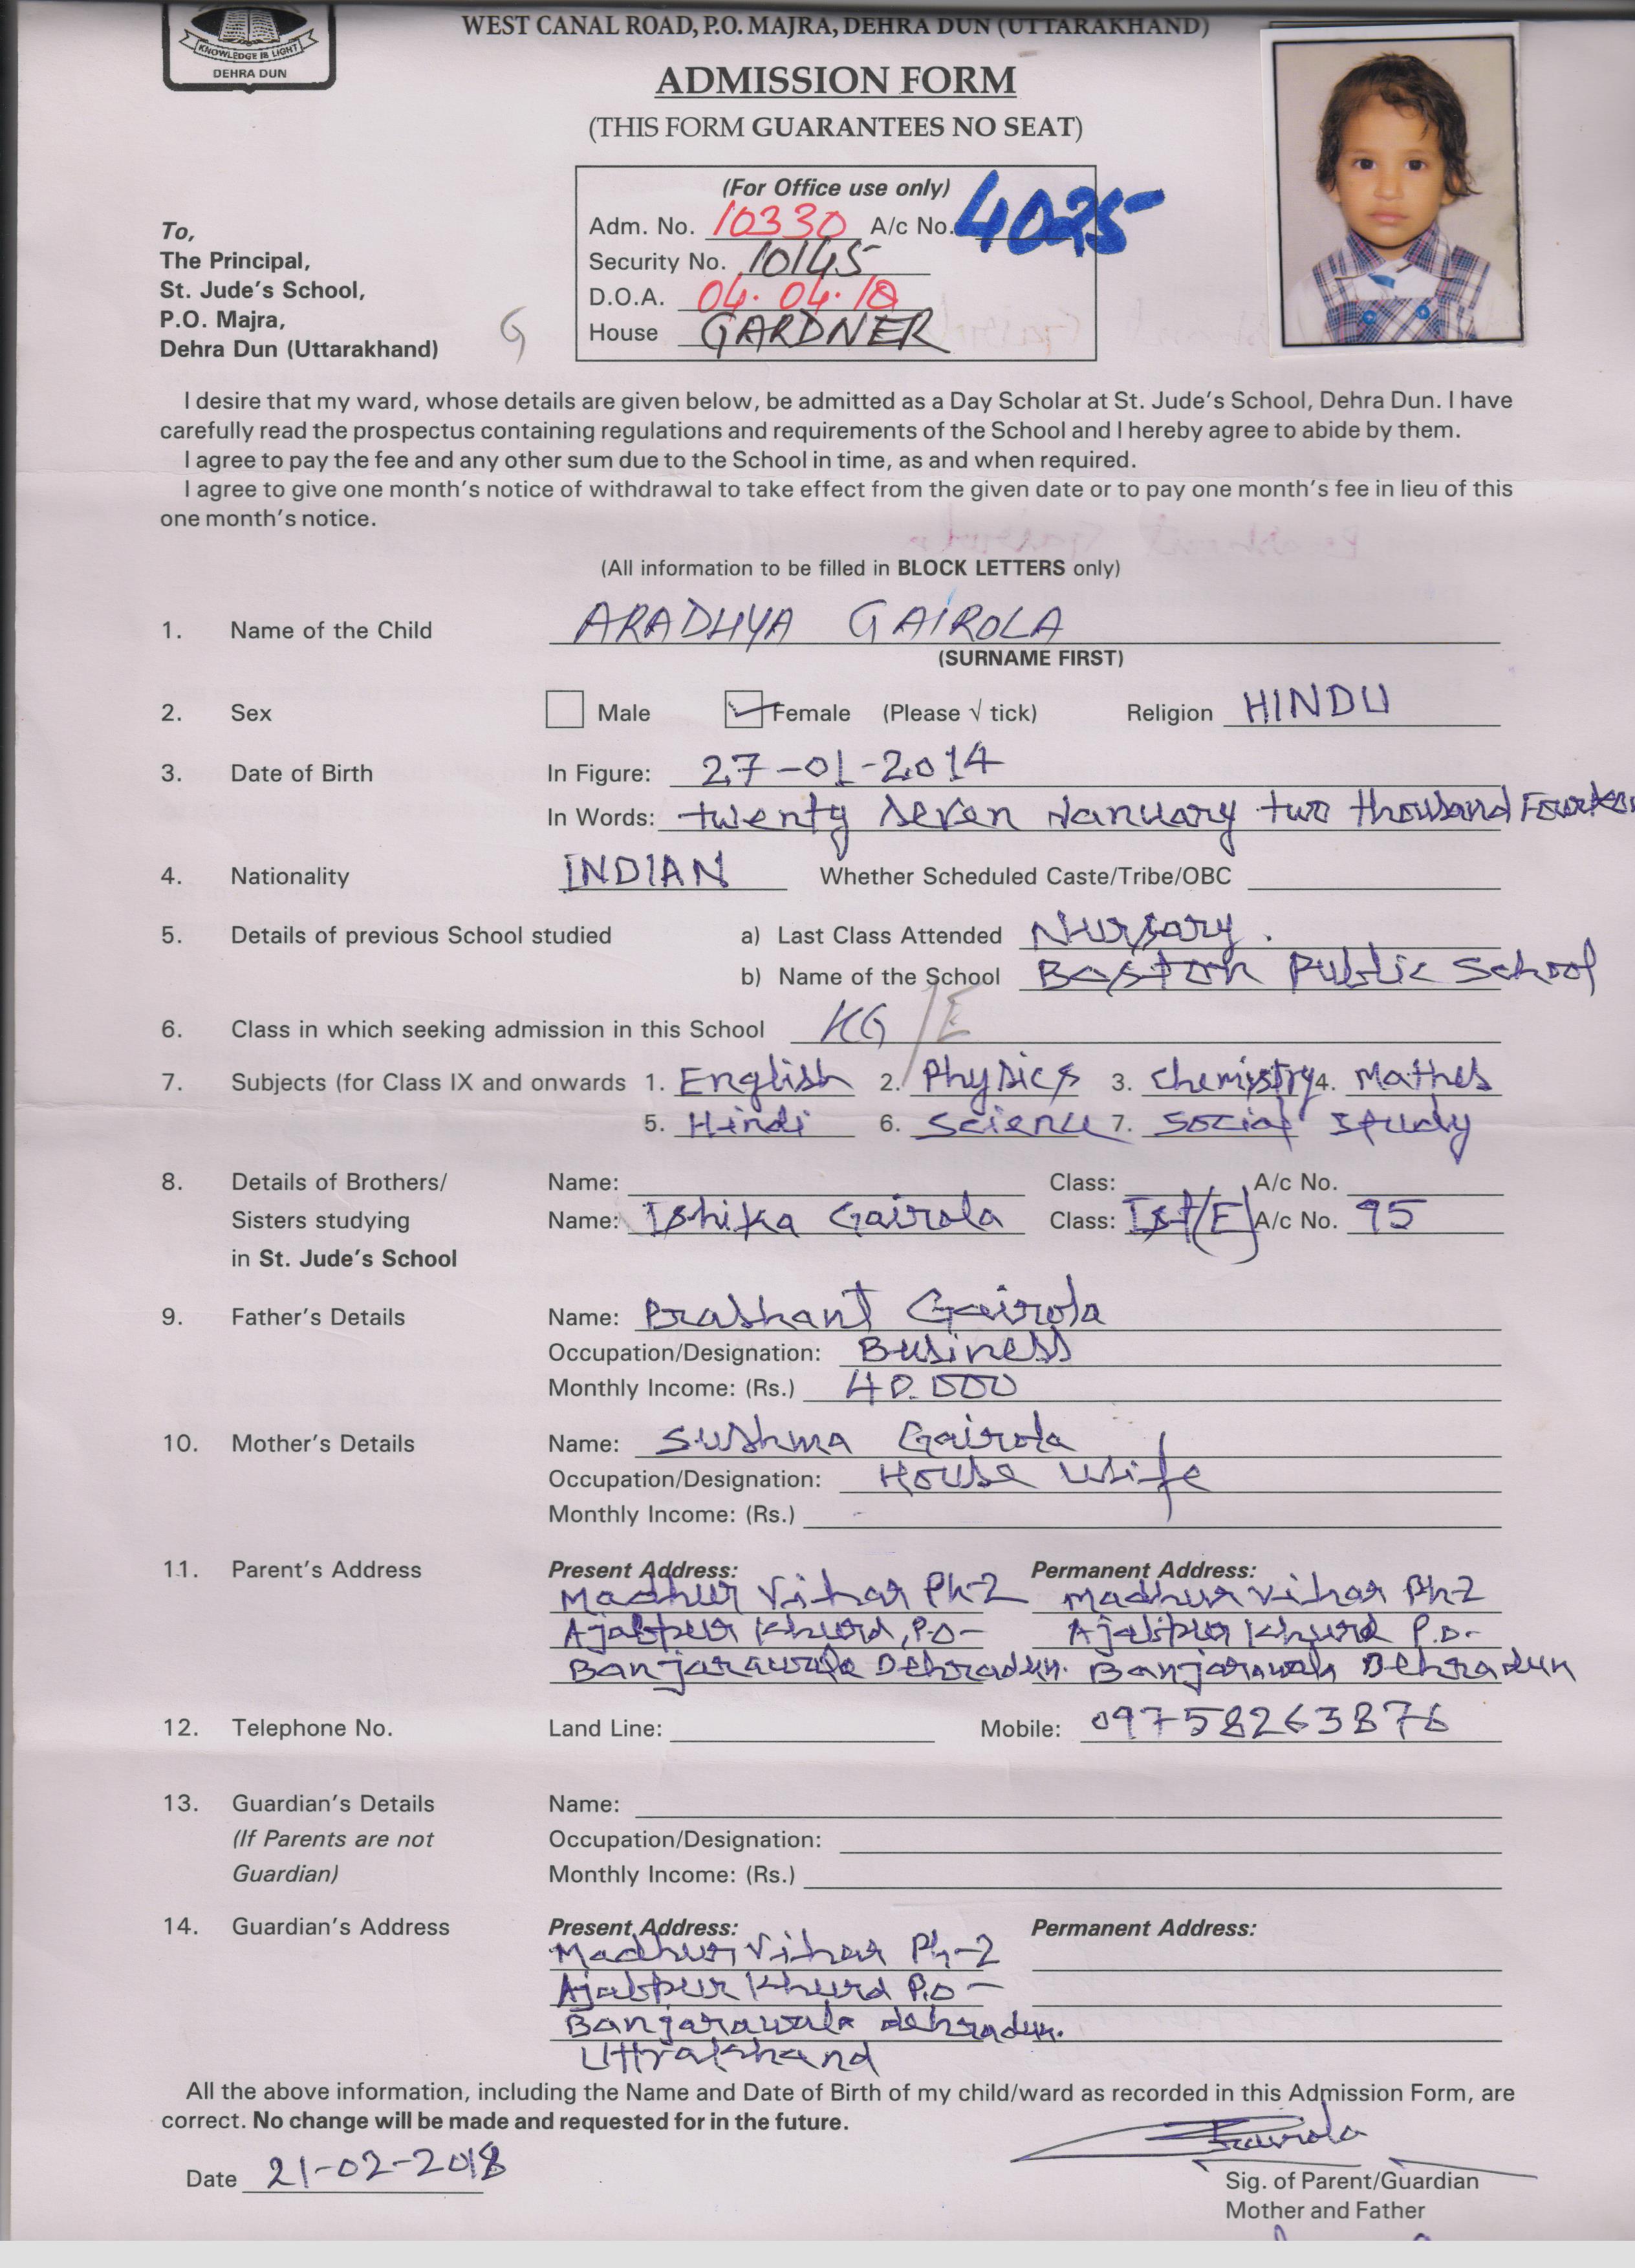 KNOWLEDGE IS LIGHT
DEHRA DUN
WEST CANAL ROAD, P.O. MAJRA, DEHRA DUN (UTTARAKHAND)
ADMISSION FORM
(THIS FORM GUARANTEES NO SEAT)
(For Office use only)
Adm. No. 10330 A/c No. 4025
Security No. 10145
D.O.A. 04.04.18
House GARDNER
To,
The Principal,
St. Jude's School,
P.O. Majra,
Dehra Dun (Uttarakhand)
G
I desire that my ward, whose details are given below, be admitted as a Day Scholar at St. Jude's School, Dehra Dun. I have
carefully read the prospectus containing regulations and requirements of the School and I hereby agree to abide by them.
I agree to pay the fee and any other sum due to the School in time, as and when required.
I agree to give one month's notice of withdrawal to take effect from the given date or to pay one month's fee in lieu of this
one month's notice.
(All information to be filled in BLOCK LETTERS only)
1. Name of the Child ARADHYA GAIROLA
(SURNAME FIRST)
2. Sex Male Female (Please √ tick) Religion HINDU
3. Date of Birth In Figure: 27-01-2014
In Words: twenty seven January two thousand Fourteen
4. Nationality INDIAN Whether Scheduled Caste/Tribe/OBC
5. Details of previous School studied a) Last Class Attended Nursary.
b) Name of the School Boston Public School
6. Class in which seeking admission in this School KG/E
7. Subjects (for Class IX and onwards 1. English 2. Physics 3. Chemistry 4. Mathes
5. Hindi 6. Science 7. Social Study
8. Details of Brothers/ Name: Class: A/c No.
Sisters studying Name: Ishika Gairola Class: Ist(E) A/c No. 95
in St. Jude's School
9. Father's Details Name: Prashant Gairola
Occupation/Designation: Business
Monthly Income: (Rs.) 40.000
10. Mother's Details Name: Sushma Gairola
Occupation/Designation: House wife
Monthly Income: (Rs.) -
11. Parent's Address Present Address: Permanent Address:
Madhur Vihar Ph-2 Madhur Vihar Ph-2
Ajabpur Khurd, P.O- Ajabpur Khurd P.O-
Banjarawala Dehradun. Banjarawala Dehradun
12. Telephone No. Land Line: Mobile: 09758263876
13. Guardian's Details Name:
(If Parents are not Occupation/Designation:
Guardian) Monthly Income: (Rs.)
14. Guardian's Address Present Address: Permanent Address:
Madhur Vihar Ph-2
Ajabpur Khurd P.O-
Banjarawala dehradun.
Uttrakhand
All the above information, including the Name and Date of Birth of my child/ward as recorded in this Admission Form, are
correct. No change will be made and requested for in the future.
Gairola
Date 21-02-2018
Sig. of Parent/Guardian
Mother and Father